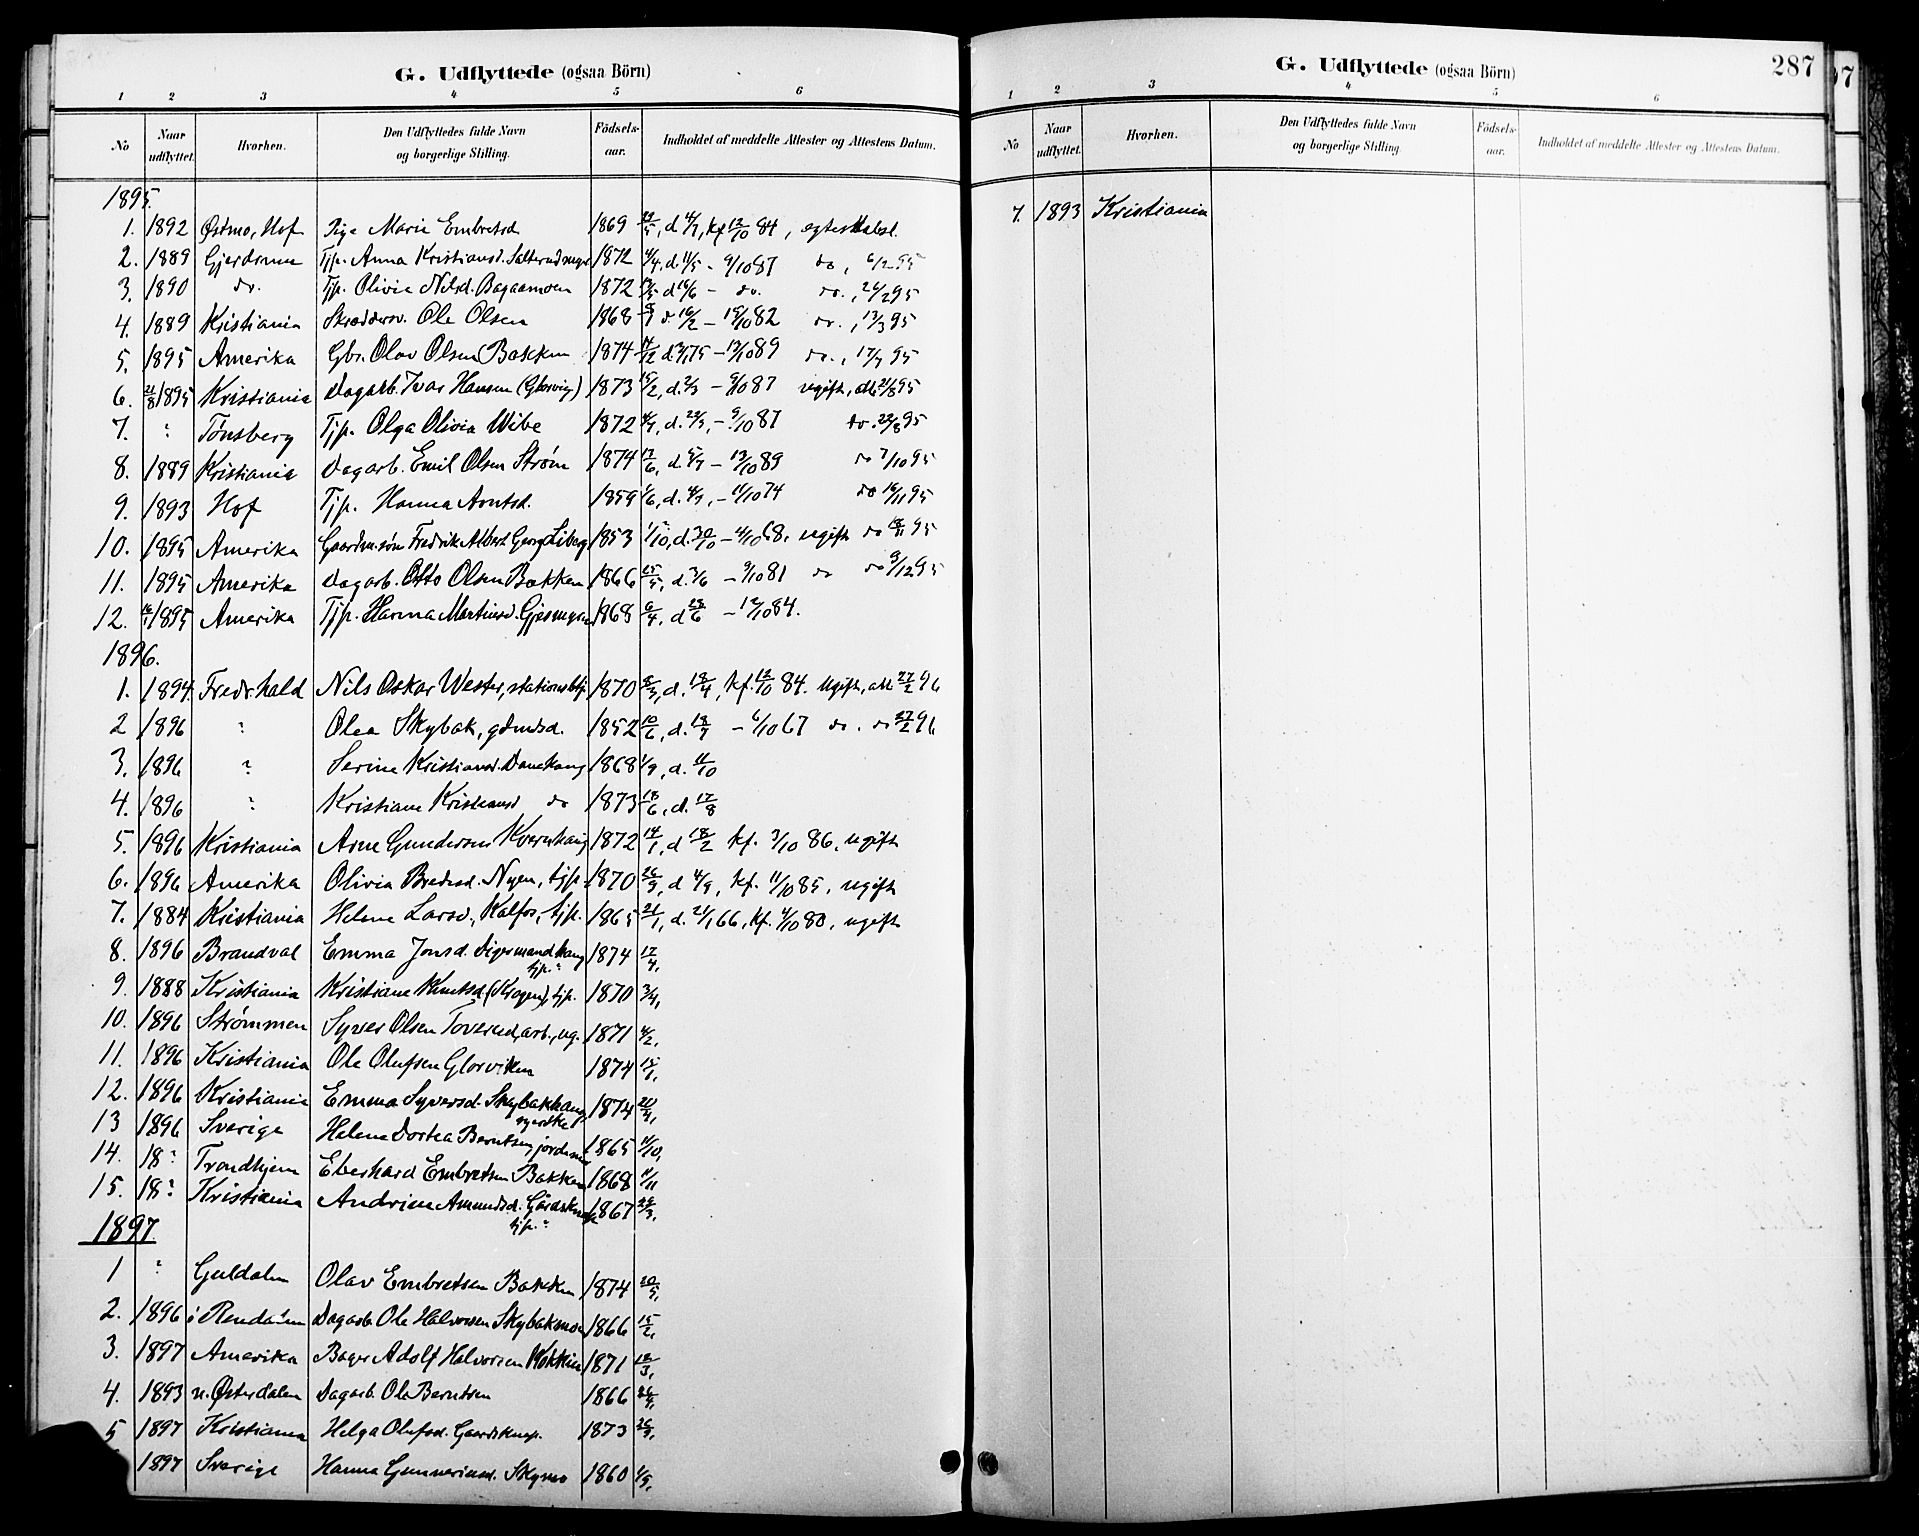 G. Udflyttede (ogsaa Börn)
1 2 3 4 5 6
No Naar udflyttet. Hvorhen. Den Udflyttedes fulde Navn og borgerlige Stilling. Fødsels-aar. Indholdet af meddelte Attester og Attestens Datum.
1895.
1. 1892 Østmo, Hof Pige Marie Embretsd 1869 kf 12/10 84, egteskabsl.
2. 1889 Gjerdrum Tjp. Anna Kristiansd. 1872 4/4, d. 11/5 - 9/10 87 do, 6/2 95
3. 1890 do. Tjp. Olivia Nilsd. Bagaamoen 1872 d 16/6 - do. do., 24/2 95
4. 1889 Kristiania Skræddersv. Ole Olsen 1868 d 16/2 - 15/10 82 do., 13/3 95
5. 1895 Amerika Gbr. Olav Olsen Bakken 1874 14/12 d 3/1 75 - 13/10 89 do., 17/7 95
6. 21/8 1895 Kristiania Dagarb. Ivar Hansen (Glorvig) 1873 15/2, d. 2/3 - 9/10 87 ugift, att. 21/8 95
7. " Tönsberg Tjp. Olga Olivia Wibe 1872 - 9/10 87 do. 22/8 95
8. 1889 Kristiania Dagarb. Emil Olsen Strøm 1874 13/6, d. 5/7 - 13/10 89 do 7/10 95
9. 1893 Hof Tjp. Hanna Arntsd. 1859 1/6, - 11/10 74 do 16/11 95
10. 1895 Amerika Gaardm.søn Fredrik Albert Georg Liberg 1853 1/10, d. 30/10 - 4/10 68. ugift do 18/11 95
11. 1895 Amerika Dagarb. Otto Olsen Bakken 1866 25/5, d. 3/6 - 9/10 81 do do 9/12 95
12. 1895 Amerika Tjp. Hanna Martinsd. 1868 6/4, d 28/6 - 12/10 84.
1896.
1. 1894 Fredrhald Nils Oskar Wester, stationsbtj. 1870 8/3, d. 18/4, kf. 12/10 84. Ugift, att 27/2 96
2 1896 " Olea Skybak, gdmdsd. 1852 10/6, d. 18/7 - 6/10 67 do. do 27/2 96
3. 1896 " Serine Kristiansd. 1868 1/9, d. 11/10
4. 1896 " Kristiane Kristiansd do 1873 18/6, d. 17/8
5. 1896 Kristiania Arne Gundersen Kvernhaug 1872 14/1, d 18/2 kf. 3/10 86, ugift
6. 1896 Amerika Olivia Bredesd. Nyen, tjp. 1870 26/3, d 4/9, kf. 11/10 85, ugift
7. 1884 Kristiania Helene Larsd, Kalfos, tjp. 1865 21/1, d. 21/1 66, kf. 4/10 80, ugift
8. 1896 Brandval Emma Jonsd. 1874 17/4,
tjp."
9. 1888 Kristiania Kristiane Knutsd. (Krogen), tjp. 1870 3/4,
10. 1896 Strømmen Syver Olsen Toverud, arb., ug. 1871 4/2,
11. 1896 Kristiania Ole Olufsen Glorviken 1874 15/1,
12. 1896 Kristiania Emma Syversd. Skybakhaug, 1874 20/4,
syerske
13 1896 Sverige Helene Dortea Berntsen, jordemor 1865 11/10,
14. 18" Trondhjem Eberhard Embretsen Bakken 1868 11/11
15. 18" Kristiania Andrine Amundsd. Gårdsknap 1867 26/3,
tjp."
1897.
1 " Guldalen Olav Embretsen Bakken 1874 20/5,
2. 1896 i Rendalen Dagarb. Ole Halvorsen Skybakmoen 1866 15/2,
3. 1897 Amerika Bager Adolf Halvorsen Kokkin 1871 18/3,
4. 1893 n. Østerdalen Dagarb. Ole Berntsen 1866 26/4,
5 1897 Kristiania Helga Olufsd. Gaardsknap. 1873 26/9,
1897 Sverige Hanna Gunneriusd. Skymo 1860 1/9,
G. Udflyttede (ogsaa Börn) 287
1 2 3 4 5 6
No Naar udflyttet. Hvorhen. Den Udflyttedes fulde Navn og borgerlige Stilling. Fødsels-aar. Indholdet af meddelte Attester og Attestens Datum.
7. 1893 Kristiania